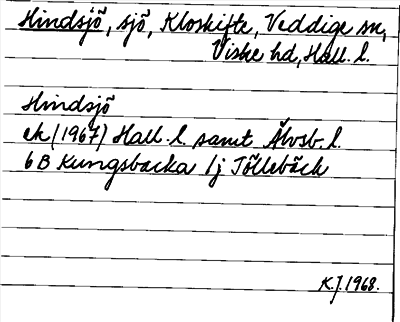 Hindsjö, sjö, Kloskifte, Veddige sn,
Viske hd, Hall. l.
Hindsjö
ek (1967) Hall. l. samt Älvsb. l.
6 B Kungsbacka 1j Töllebäck
K.J. 1968.